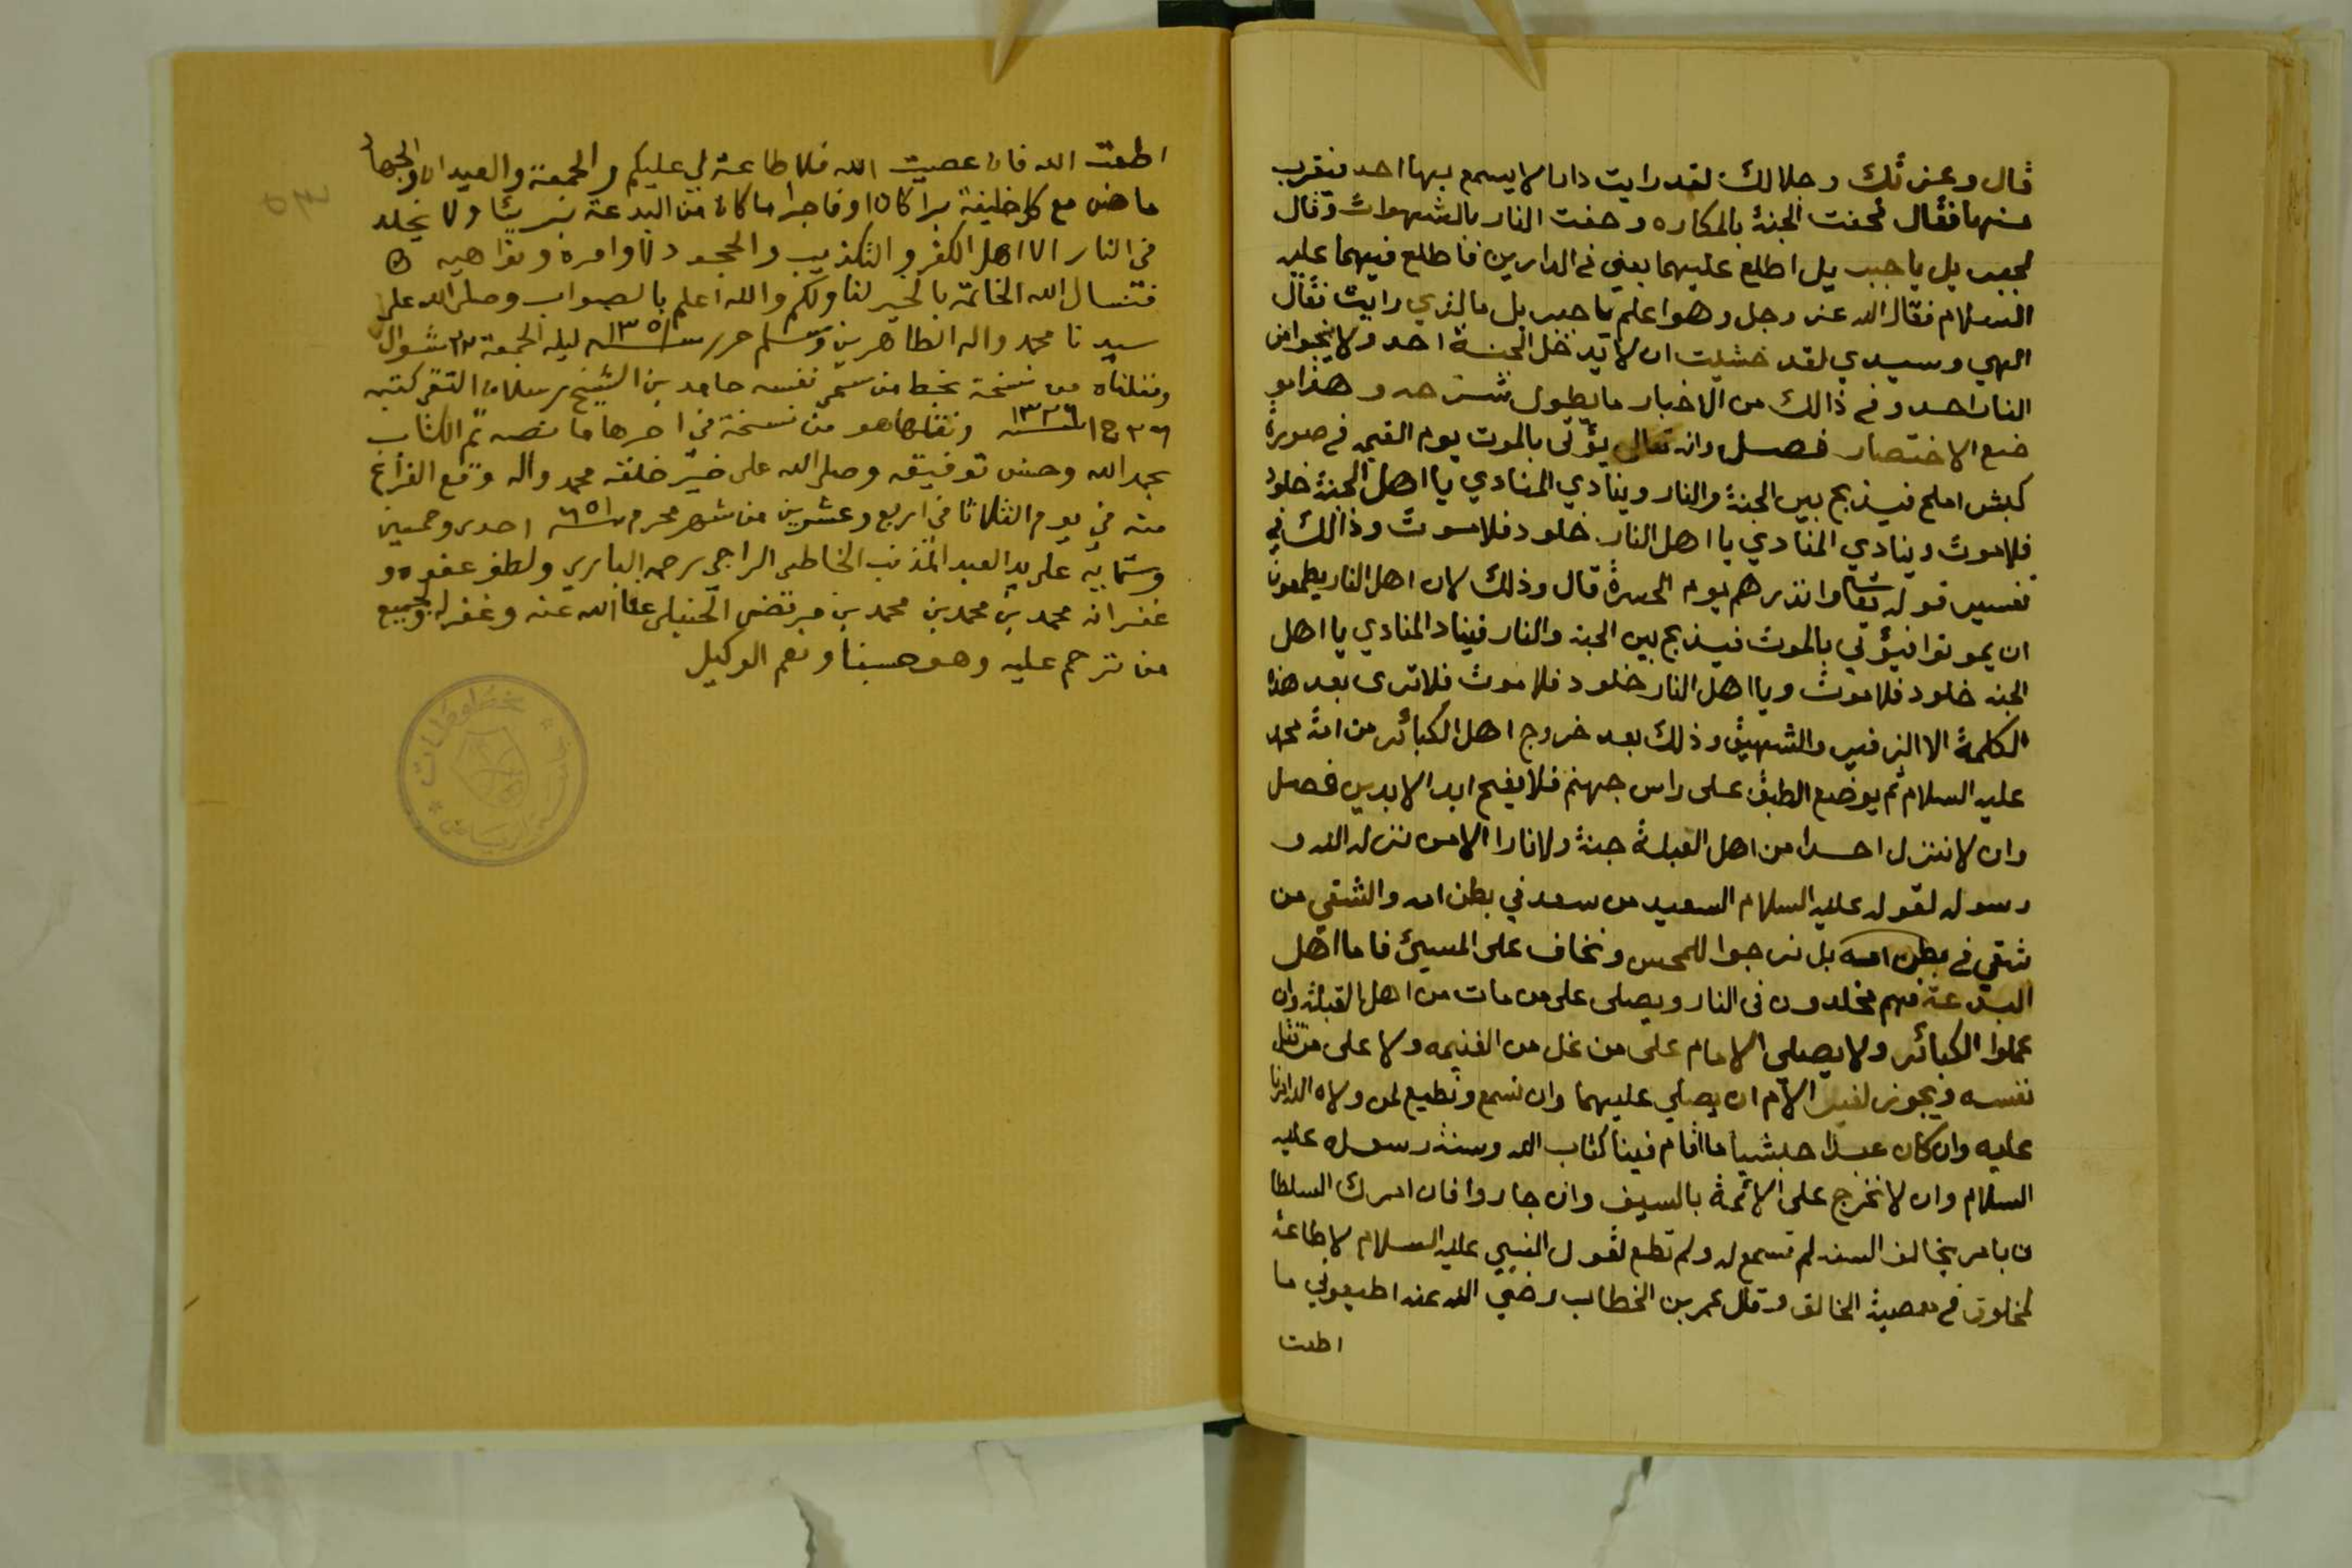 قال وعزتك وجلالك لقد رايت دارا لا يسمع بها احد فيقرب
منها فقال فحفت الجنة بالمكاره وحفت النار بالشهوات وقال
لجبريل يا جبريل اطلع عليهما يعني في الدارين فاطلع فيهما عليه
السلام فقال الله عز وجل وهو اعلم يا جبريل ما لذي رايت فقال
الهي وسيدي لقد خشيت ان لا يدخل الجنة احد ولا ينجوا من
النار احد وفي ذالك من الاخبار ما يطول شرحه وهذا مو
ضع الاختصار فصل وانه تعالى يؤتى بالموت يوم القيمه في صورة
كبش املح فيذبح بين الجنة والنار وينادي المنادي يا اهل الجنة خلود
فلا موت وينادي المنادي يا اهل النار خلود فلا موت وذالك في
تفسير قوله تعالى وانذرهم يوم الحسرة قال وذلك لان اهل النار يطمعون
ان يموتوا فيؤتي بالموت فيذبح بين الجنه والنار فيناد المنادي يا اهل
الجنه خلود فلا موت ويا اهل النار خلود فلا موت فلا ترى بعد هذه
الكلمة الا الزفير والشهيق وذلك بعد خروج اهل الكبائر من امة محمد
عليه السلام ثم يوضع الطبق على راس جهنم فلا يفتح ابد الابدين فصل
وان لا ننزل احدا من اهل القبلة جنة ولا نارا الا من نزله الله و
رسوله لقوله عليه السلام السعيد من سعد في بطن امه والشقي من
شقي في بطن امه بل نرجوا للمحسن ونخاف على المسيئ فاما اهل
البدعة فهم مخلدون في النار ويصلى على من مات من اهل القبلة وان
عملوا الكبائر ولا يصلي الامام على من غل من الغنيمه ولا على من قتل
نفسه ويجوز لغير الامام ان يصلي عليهما وان نسمع ونطيع لمن ولاه الله امرنا
عليه وان كان عبدا حبشيا ما اقام فينا كتاب الله وسنة رسوله عليه
السلام وان لا نخرج على الائمة بالسيف وان جاروا فان امرك السلطا
ن بامر يخالف السنه لم تسمع له ولم تطع لقول النبيي عليه السلام لا طاعة
لمخلوق في معصية الخالق وقال عمر بن الخطاب رضي الله عنه اطيعوني ما
اطعت
اطعت الله فان عصيت الله فلا طاعة لي عليكم والجمعة والعيدان والجهاد
ماض مع كل خليفة برا كان او فاجرا ما كان من البدعة بريئا ولا يخلد
في النار الا اهل الكفر والتكذيب والجحود لاوامره ونواهيه
فنسال الله الخاتمة بالخير لنا ولكم والله اعلم بالصواب وصلى الله على
سيدنا محمد واله الطاهرين وسلم حرر سنة ١٣٥١ ليله الجمعة ٢٣ شوال
ونقلناه من نسخة بخط من سمى نفسه حامد بن الشيخ رسلان التقي كتبه
٢٦ ج ١ سنة ١٣٢٦ ونقلها هو من نسخة في اخرها ما نصه تم الكتاب
بحمد الله وحسن توفيقه وصلى الله على خير خلقه محمد واله وقع الفراغ
منه في يوم الثلاثا في اربع وعشرين من شهر محرم سنة ٦٥١ احدى وخمسين
وستمايه على يد العبد المذنب الخاطي الراجي رحمة الباري ولطف عفوه و
غفرانه محمد بن محمد بن محمد بن مرتضى الحنبلي عفا الله عنه وغفر له ولجميع
من ترحم عليه وهو حسبنا ونعم الوكيل
مخطوطات